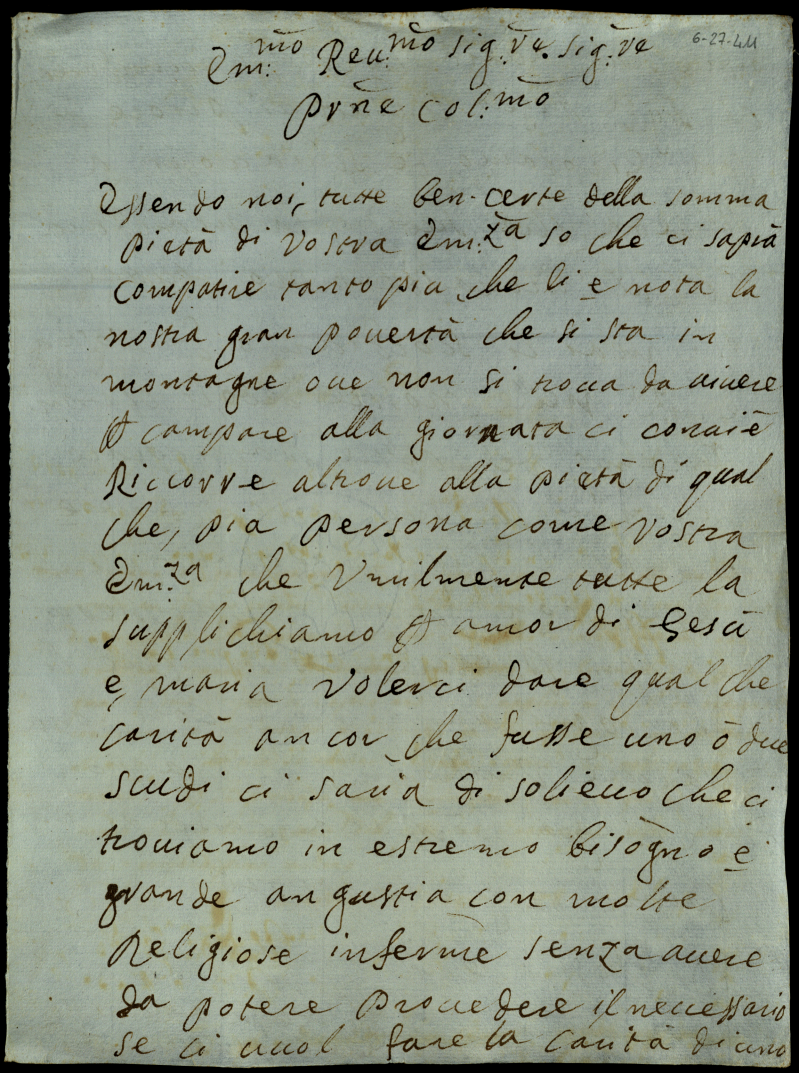 6-27-411
Em:mo Reu:mo sig:re. sig:re
Prne Col:mo
Essendo noi, tutte ben certe della somma
pietà di Vostra Em:za so che ci saprà
compatire tanto più che li e nota la
nostra gran pouertà che si sta in
montagne oue non si troua da uiuere
p campare alla giornata ci conuiē
Riccorre altroue alla pietà di qual
che, pia persona come Vostra
Em:za che Vmilmente tutte la
supplichiamo p amor di Gesù
e, maria volerci dare qual che
carità ancor che fusse uno ò due
scudi ci saria di solieuo che ci
trouiamo in estremo bisogno e
grande angustia con molte
Religiose inferme senza auere
da potere prouedere il necessario
se ci uuol fare la carità di uno